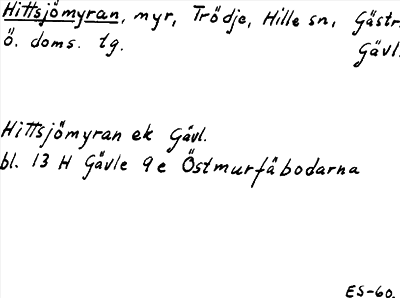 Hittsjömyran, myr, Trödje, Hille sn, Gästr.
ö. doms. tg. Gävl.
Hittsjömyran ek Gävl.
bl. 13 H Gävle 9e Östmurfäbodarna
ES-60.